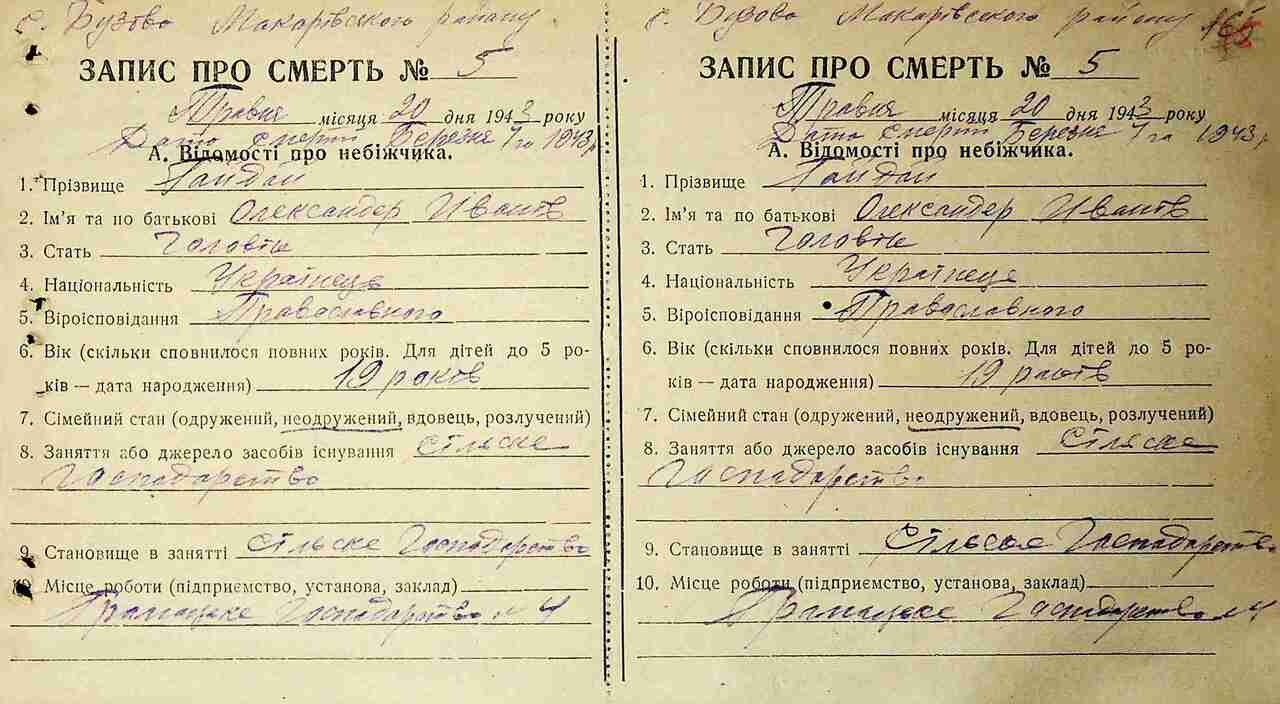 с. Бузова Макарівського району
ЗАПИС ПРО СМЕРТЬ № 5
Травня місяця 20 дня 1943 року
Дата смерті Березня 7 го 1943 р
А. Відомості про небіжчика.
1. Прізвище Гайдай
2. Ім'я та по батькові Олександер Иванів
3. Стать Чоловіча
4. Національність Українець
5. Віроісповідання Православного
6. Вік (скільки сповнилося повних років. Для дітей до 5 ро-
ків — дата народження) 19 років
7. Сімейний стан (одружений, неодружений, вдовець, розлучений)
8. Заняття або джерело засобів існування Сільске
Господарство
9. Становище в занятті Сільске Господарство
10. Місце роботи (підприємство, установа, заклад)
Громадське Господарство № 4
с. Бузова Макарівського району
ЗАПИС ПРО СМЕРТЬ № 5
Травня місяця 20 дня 1943 року
Дата смерті Березня 7 го 1943 р
А. Відомості про небіжчика.
1. Прізвище Гайдай
2. Ім'я та по батькові Олександер Иванів
3. Стать Чоловіча
4. Національність Українець
5. Віроісповідання Православного
6. Вік (скільки сповнилося повних років. Для дітей до 5 ро-
ків — дата народження) 19 років
7. Сімейний стан (одружений, неодружений, вдовець, розлучений)
8. Заняття або джерело засобів існування Сільске
Господарство
9. Становище в занятті Сільське Господарство
10. Місце роботи (підприємство, установа, заклад)
Громадське Господарство № 4